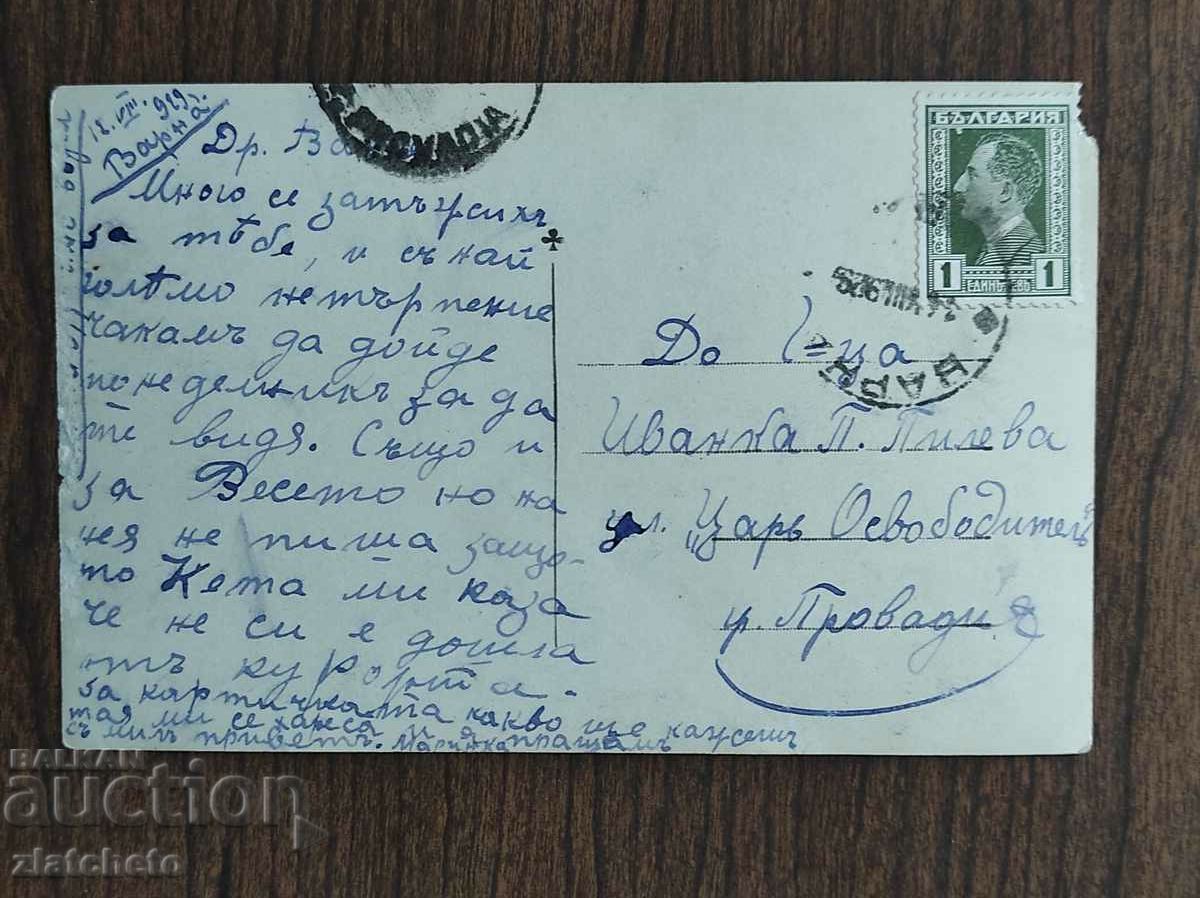 12.VIII.929г.
Варна
Др.
Много се затъжихъ
за тѣбе, и съ най
голѣмо нетърпение
чакамъ да дойде
понеделникъ за да
те видя. Също и
за Весето но на
нея не пиша защо-
то Кета ми каза
че не си е дошла
отъ курорта.
за картичката какво ще кажешъ
тая ми се хареса и я пращамъ
съ милъ приветъ. Маринка
PROVADIA
БЪЛГАРИЯ
1 ЕДИНЪ ЛЕВЪ 1
ВАРН
До Г-ца
Иванка П. Пилева
ул. "Царь Освободитель
гр. Провадия
BALKAN
auction
zlatcheto